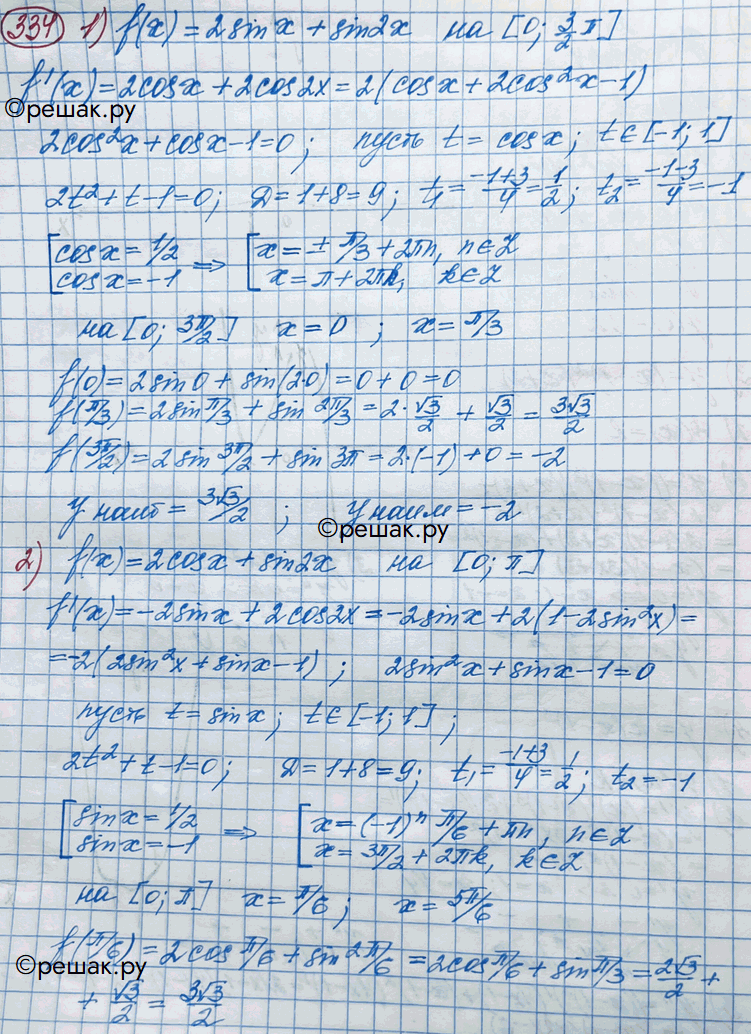 334 1) f(x) = 2sinx + sin2x на [0; 3/2 π]
f'(x) = 2cosx + 2cos2x = 2(cosx + 2cos²x - 1)
©решак.ру
2cos²x + cosx - 1 = 0; пусть t = cosx; t∈[-1; 1]
2t² + t - 1 = 0; Д = 1+8 = 9; t₁ = (-1+3)/4 = 1/2; t₂ = (-1-3)/4 = -1
[cosx = 1/2 => [x = ± π/3 + 2πn, n∈Z
cosx = -1 x = π + 2πk, k∈Z
на [0; 3π/2] x = 0 ; x = π/3
f(0) = 2sin0 + sin(2·0) = 0 + 0 = 0
f(π/3) = 2sin π/3 + sin 2π/3 = 2·√3/2 + √3/2 = 3√3/2
f(3π/2) = 2sin 3π/2 + sin 3π = 2·(-1) + 0 = -2
y наиб = 3√3/2 ; y наим = -2
©решак.ру
2) f(x) = 2cosx + sin2x на [0; π]
f'(x) = -2sinx + 2cos2x = -2sinx + 2(1 - 2sin²x) =
= -2(2sin²x + sinx - 1) ; 2sin²x + sinx - 1 = 0
пусть t = sinx; t∈[-1; 1];
2t² + t - 1 = 0; Д = 1+8 = 9; t₁ = (-1+3)/4 = 1/2; t₂ = -1
[sinx = 1/2 => [x = (-1)ⁿ π/6 + πn, n∈Z
sinx = -1 x = 3π/2 + 2πk, k∈Z
на [0; π] x = π/6 ; x = 5π/6
f(π/6) = 2cos π/6 + sin 2π/6 = 2cos π/6 + sin π/3 = 2√3/2 +
©решак.ру
+ √3/2 = 3√3/2